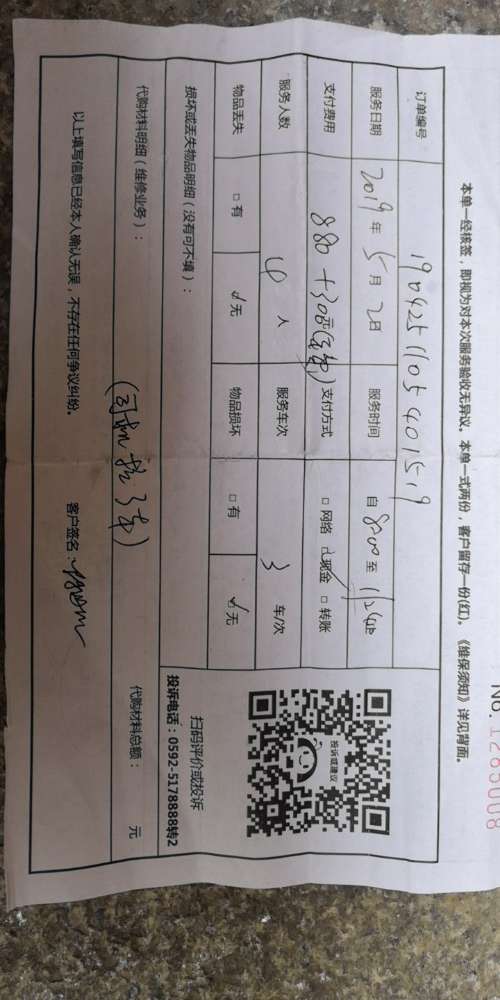 No. 1285008
本单一经核签，即视为对本次服务验收无异议。本单一式两份，客户留存一份(红)。《维保须知》详见背面。
订单编号 1904251105401519
服务日期 2019 年 5 月 2 日 服务时间 自 8:00 至
支付费用 880+30 支付方式 □网络 ☑现金 □转账
服务人数 4 人 服务车次 3 车/次
物品丢失 □有 ☑无 物品损坏 □有 ☑无
损坏或丢失物品明细（没有可不填）：
代购材料明细（维修业务）： 代购材料总额： 元
以上填写信息已经本人确认无误，不存在任何争议纠纷。 客户签名：
投诉或建议
扫码评价或投诉
投诉电话：0592-5178888转2